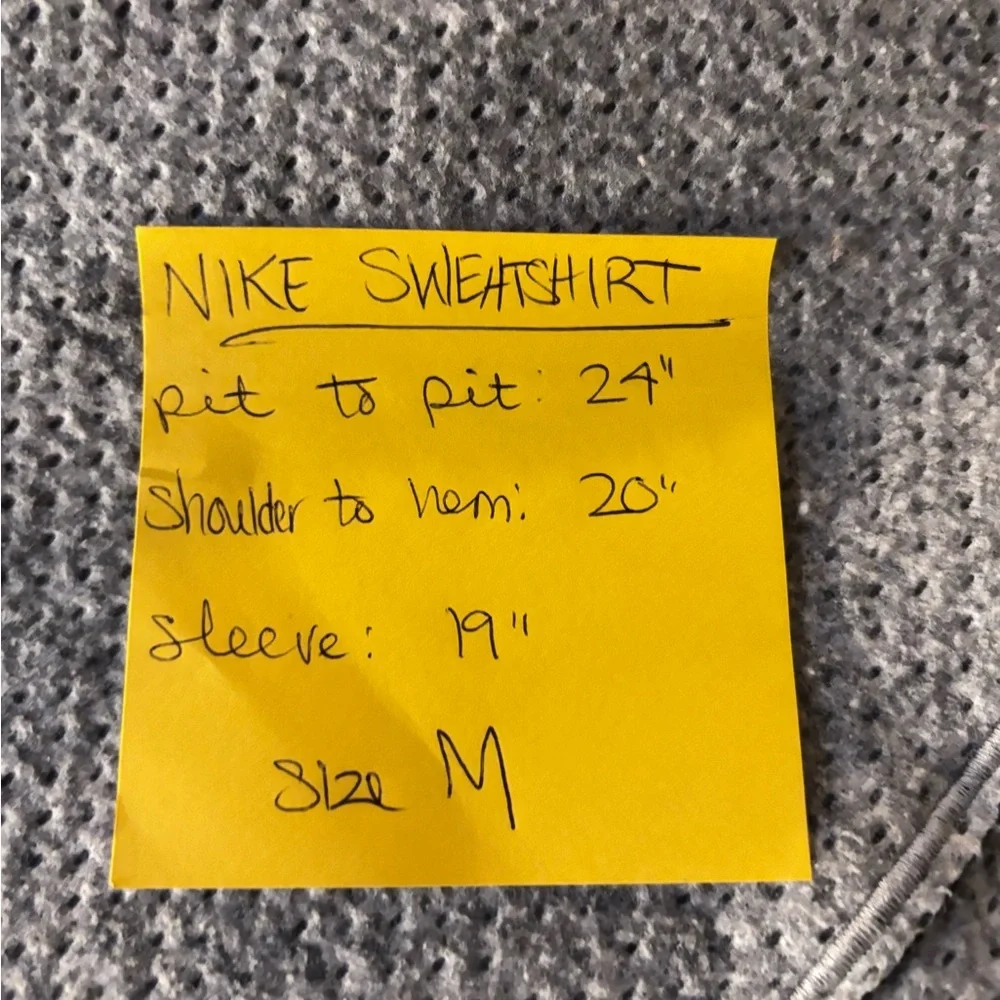 NIKE SWEATSHIRT
pit to pit: 24"
shoulder to hem: 20"
sleeve: 19"
size M